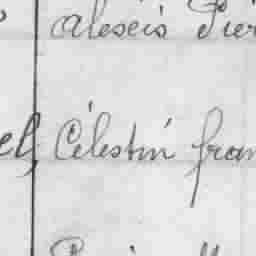 alexcis Pier
el, Célestin fran